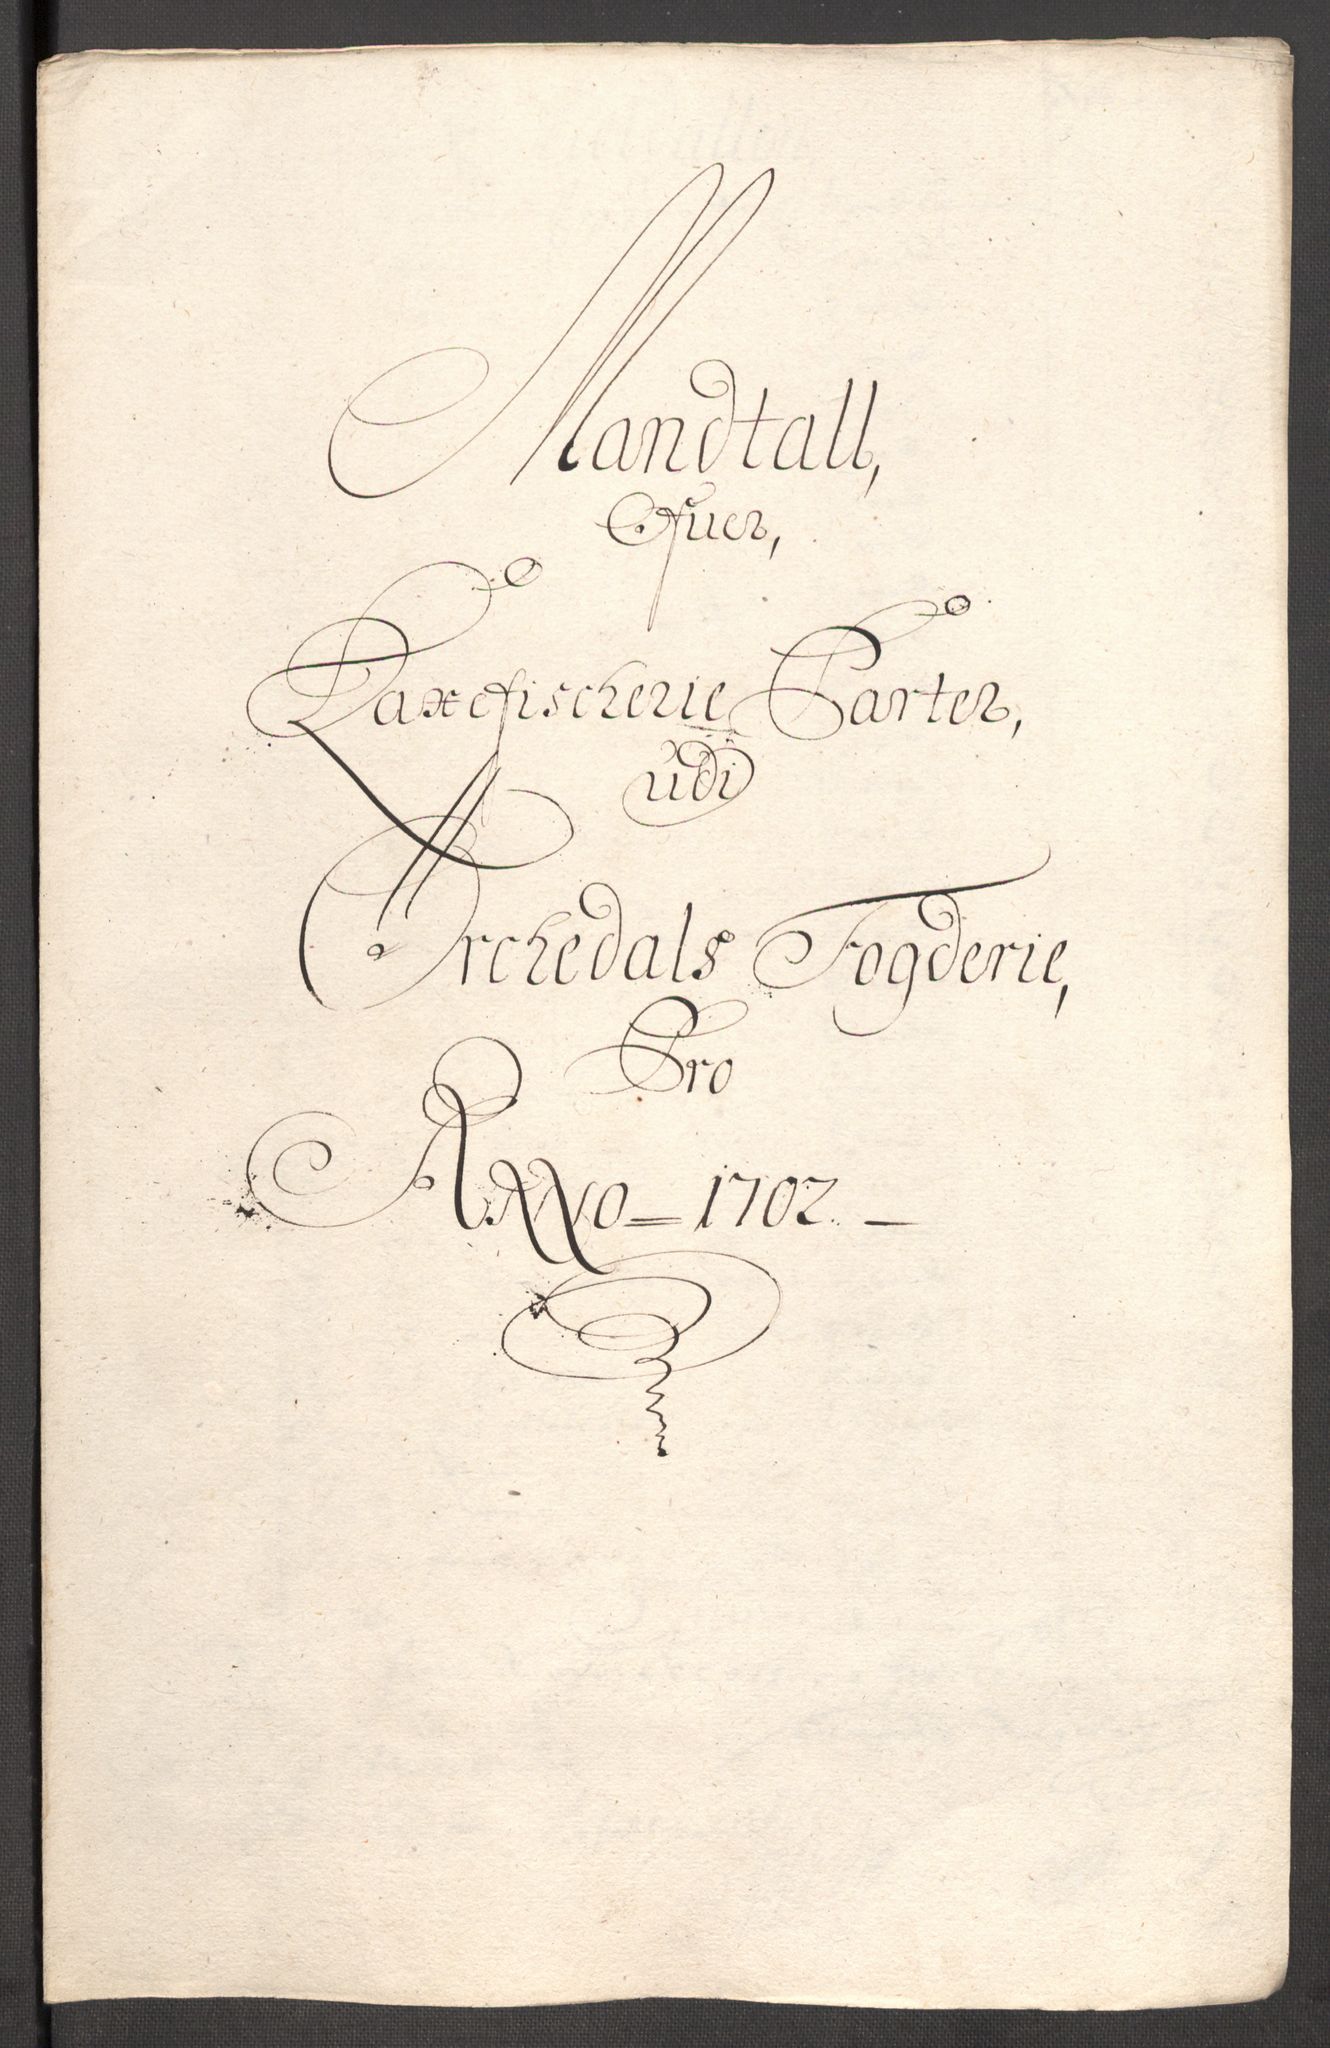 Mandtall,
Ofuer,
Laxefischerie Parter,
udi
Orchedals Fogderie,
Pro
ANNO = 1702. —